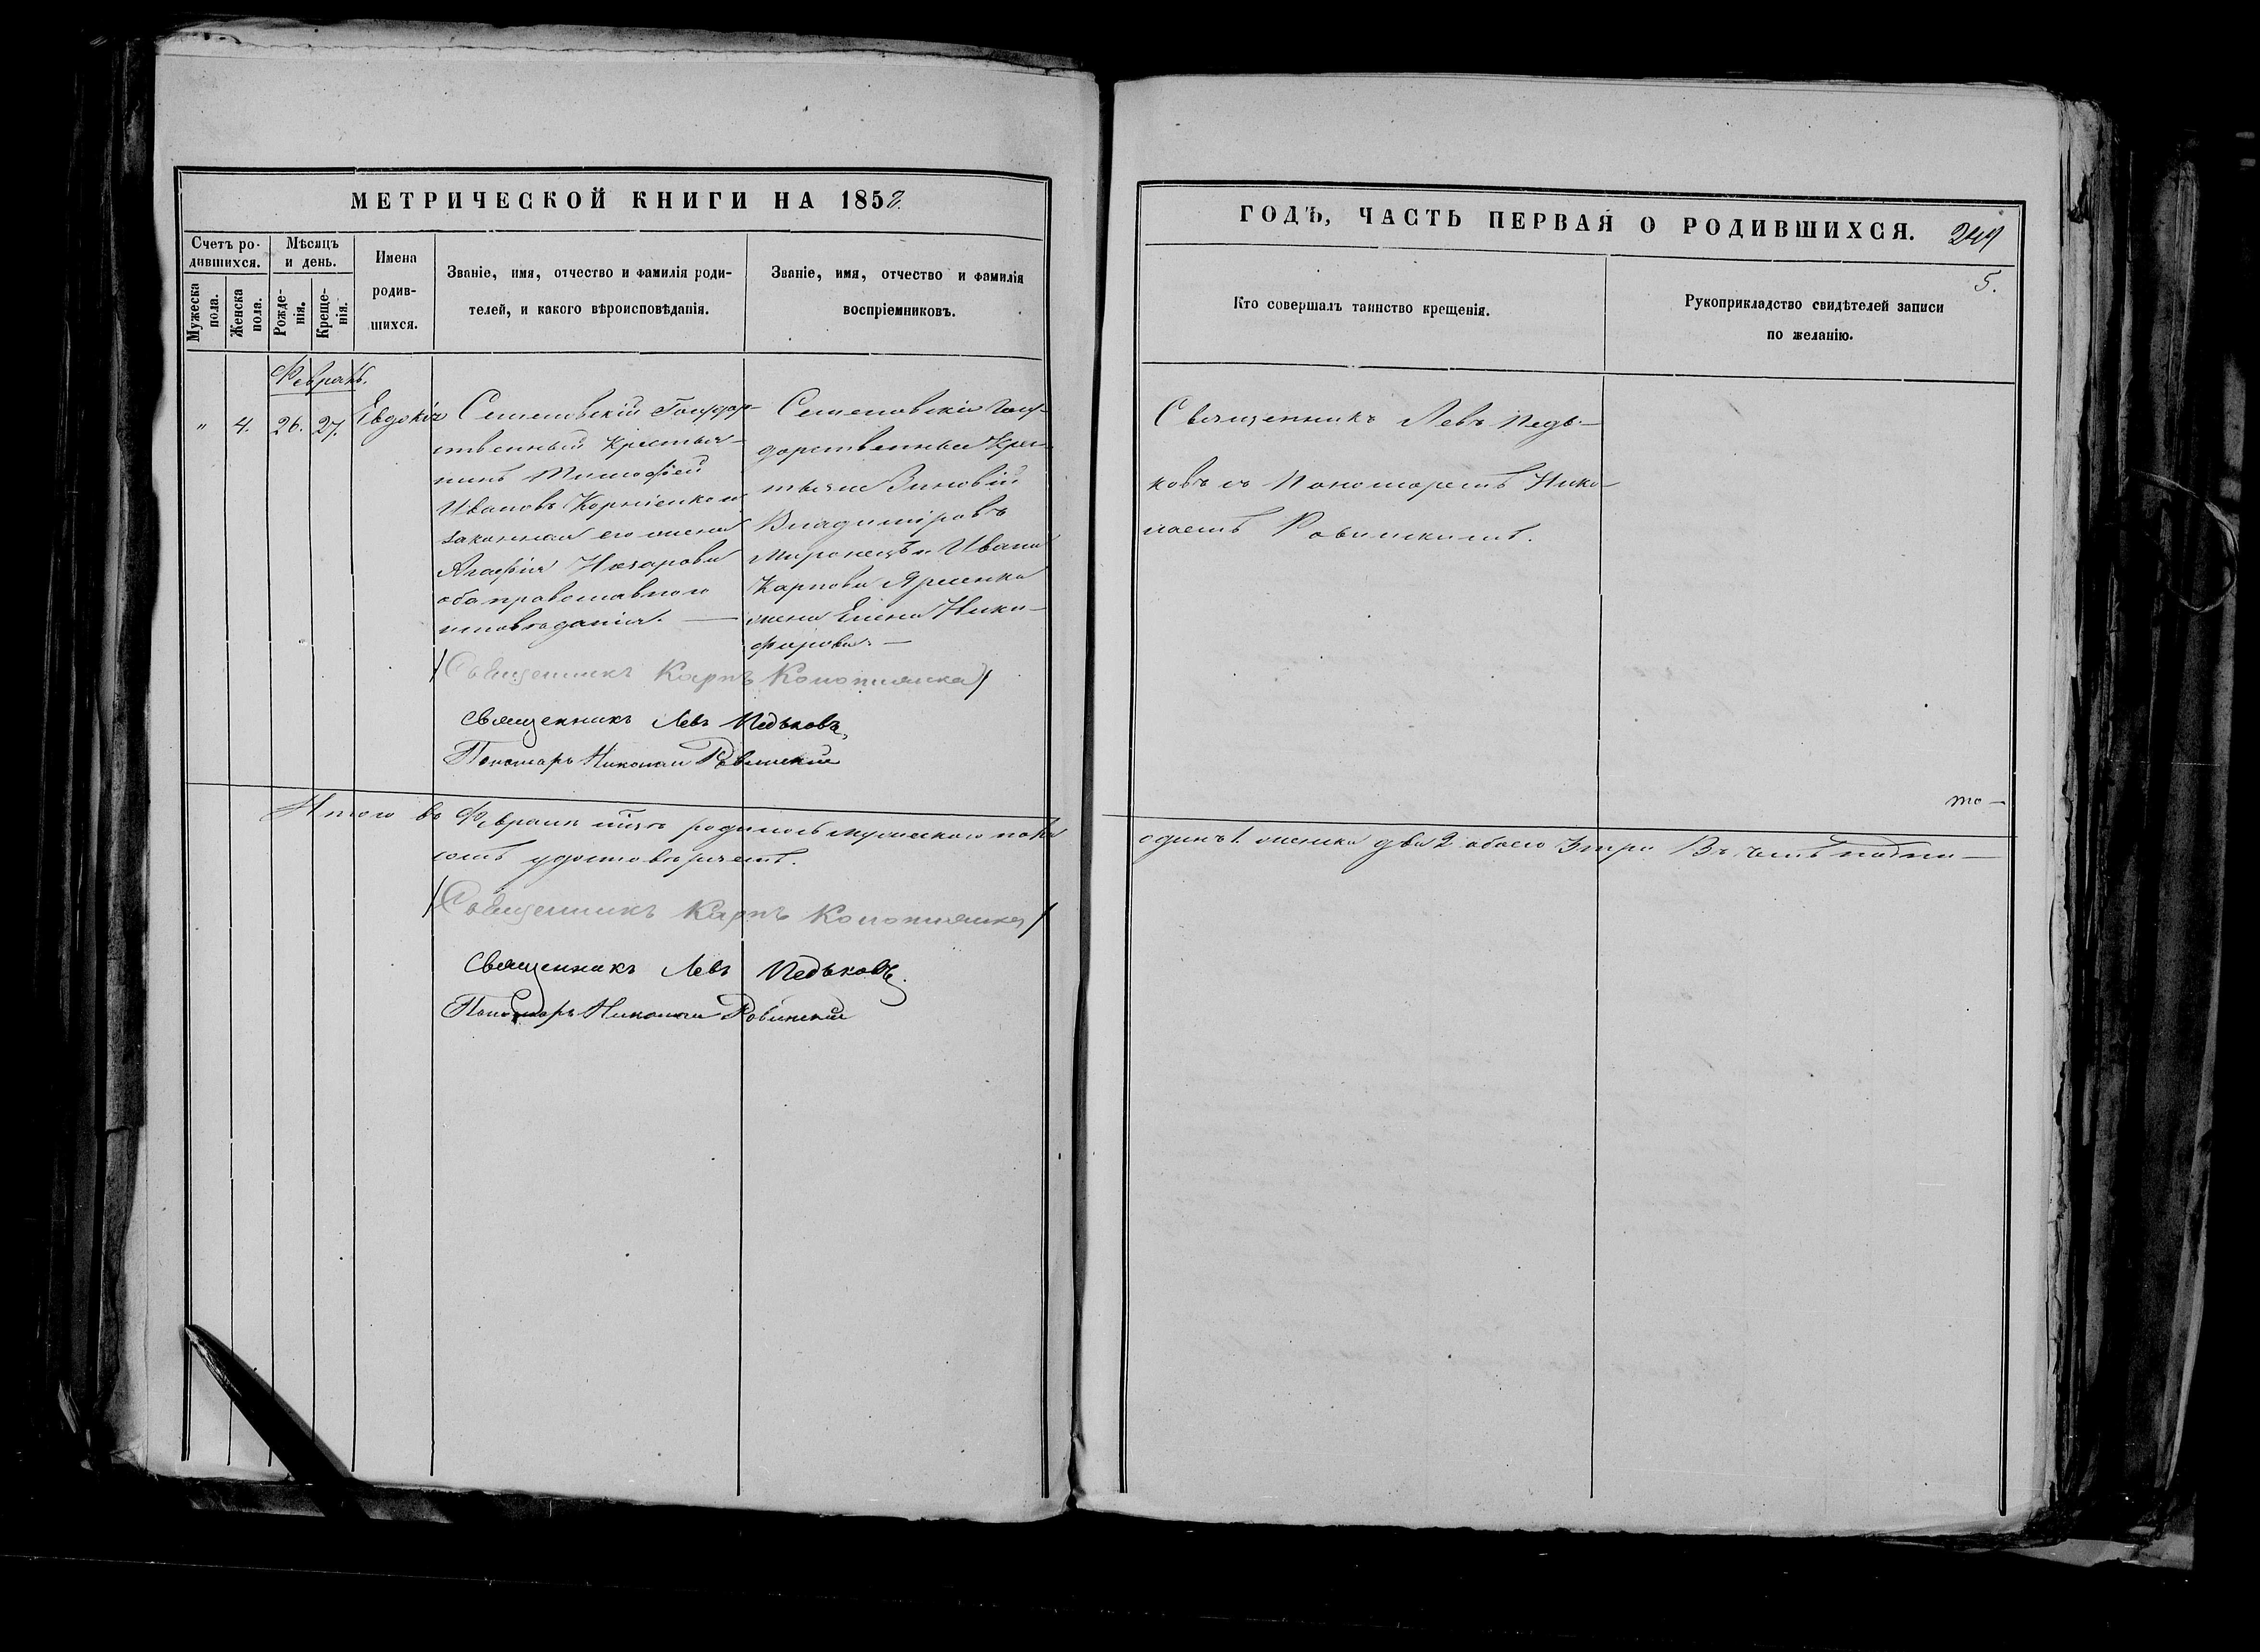 МЕТРИЧЕСКОЙ КНИГИ НА 1858.
Счетъ ро-
дившихся.
Мужеска
пола.
Женска
пола.
Мѣсяцъ
и день.
Рожде-
нія.
Креще-
нія.
Имена
родив-
шихся.
Званіе, имя, отчество и фамилія роди-
телей, и какого вѣроисповѣданія.
Званіе, имя, отчество и фамилія
воспріемниковъ.
Февраль.
" 4. 26. 27. Евдокія
Семеновскій Государ-
ственный крестья-
нинъ Тимофей
Ивановъ Корніенко и
законная его жена
Агафія Назарова
оба православного
исповѣданія. —
Семеновскіе Госу-
дарственные Крес-
тьяне Зиновій
Владиміровъ
Миронецъ и Ивана
Карпова Яременка
жена Елена Ники-
форова. —
/Священникъ Карпъ Конопляка/
Священникъ Левъ Педьковъ,
Пономарь Николай Ровинский
Итого въ Февралѣ мцѣ родилось мужескаго пола
ютъ удостовѣряемъ.
/Священникъ Карпъ Конопляка/
Священникъ Левъ Педьковъ.
Пономарь Николай Ровинский
ГОДЪ, ЧАСТЬ ПЕРВАЯ О РОДИВШИХСЯ. 244
5.
Кто совершалъ таинство крещенія.
Рукоприкладство свидѣтелей записи
по желанію.
Священникъ Левъ Педь-
ковъ съ Пономаремъ Нико-
лаемъ Ровинскимъ.
одинъ 1. женска два 2 обоего 3 три Въ чемъ